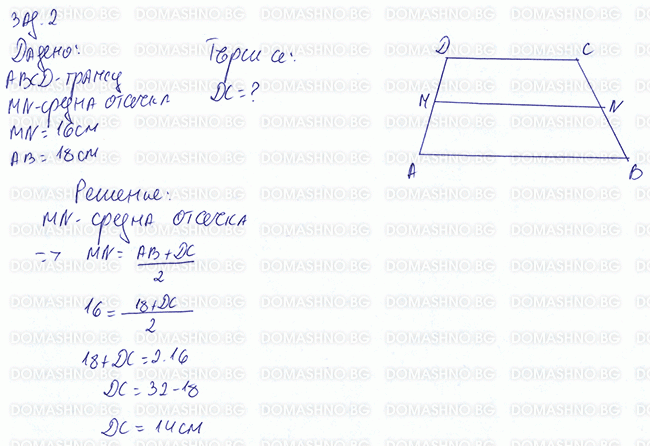 Зад. 2
Дадено:
ABCD-трапец
MN-средна отсечка
MN = 16 см
AB = 18 см
Търси се:
DC = ?
D C
M N
A B
Решение:
MN - средна отсечка
=> MN = (AB + DC) / 2
16 = (18 + DC) / 2
18 + DC = 2.16
DC = 32 - 18
DC = 14 см
DOMASHNO.BG